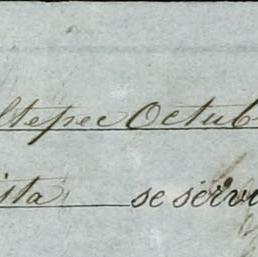 ltepec Octub
ista se servi